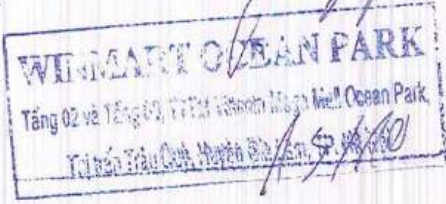 WINMART OCEAN PARK
Tầng 02 và Tầng 03, TTTM Vincom Mega Mall Ocean Park,
Thị trấn Trâu Quỳ, Huyện Gia Lâm, TP. Hà Nội